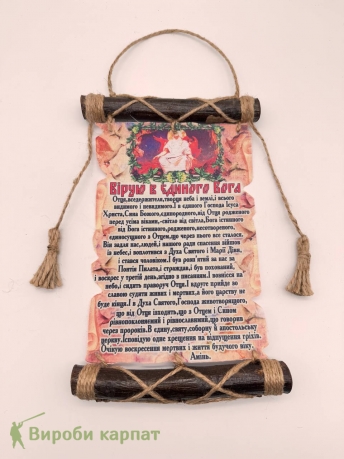 Вірую в Єдиного Бога
Отця,вседержителя,творця неба і землі,і всього
видимого і невидимого.І в єдиного Господа Ісуса
Христа,Сина Божого,єдинородного,від Отця родженного
перед усіма віками,-світло від світла,Бога істинного
від Бога істинного,родженного,несотворенного,
єдиносущного з Отцем,що через нього все сталося.
Він задля нас,людей,і нашого ради спасіння зійшов
із небес,і воплотився з Духа Святого і Марії Діви,
і стався чоловіком.І був розп'ятий за нас за
Понтія Пилата,і страждав,і був похований,
і воскрес у третій день,згідно з писанням.І вознісся на
небо,і сидить праворуч Отця.І вдруге прийде во
славою судити живих і мертвих,а його царству не
буде кінця.І в Духа Святого,Господа животворящого,
що від Отця ісходить,що з Отцем і Сином
рівнопоклоняємий і рівнославимий,що говорив
через пророків.В єдину,святу,соборну й апостольську
церкву.Ісповідую одне хрещення на відпущення гріхів.
Очікую воскресення мертвих і життя будучого віку.
Амінь.
Вироби карпат